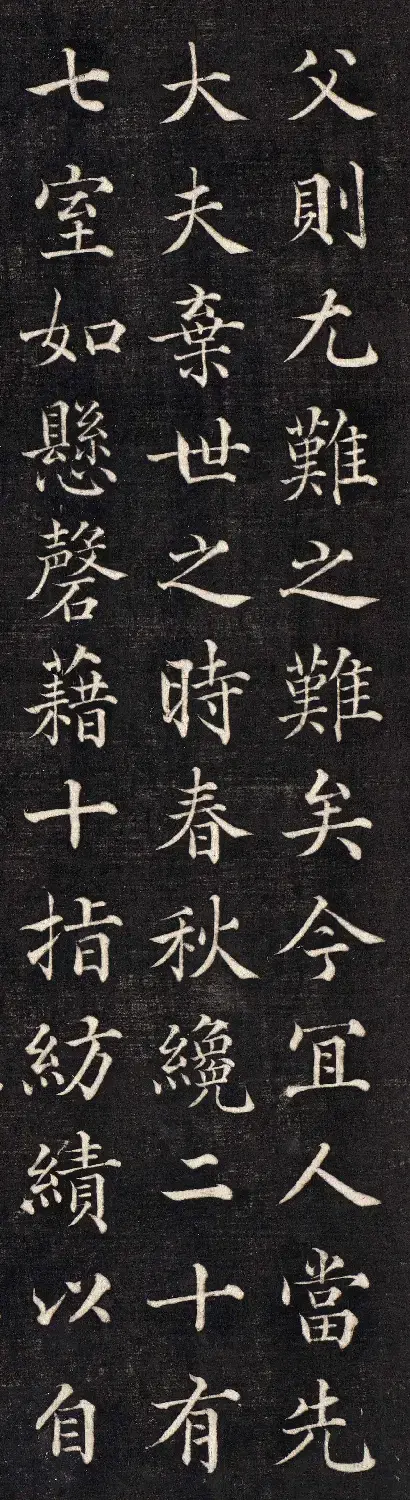 父則尤難之難矣今冝人當先
大夫棄世之時春秋纔二十有
七室如懸磬藉十指紡績以自